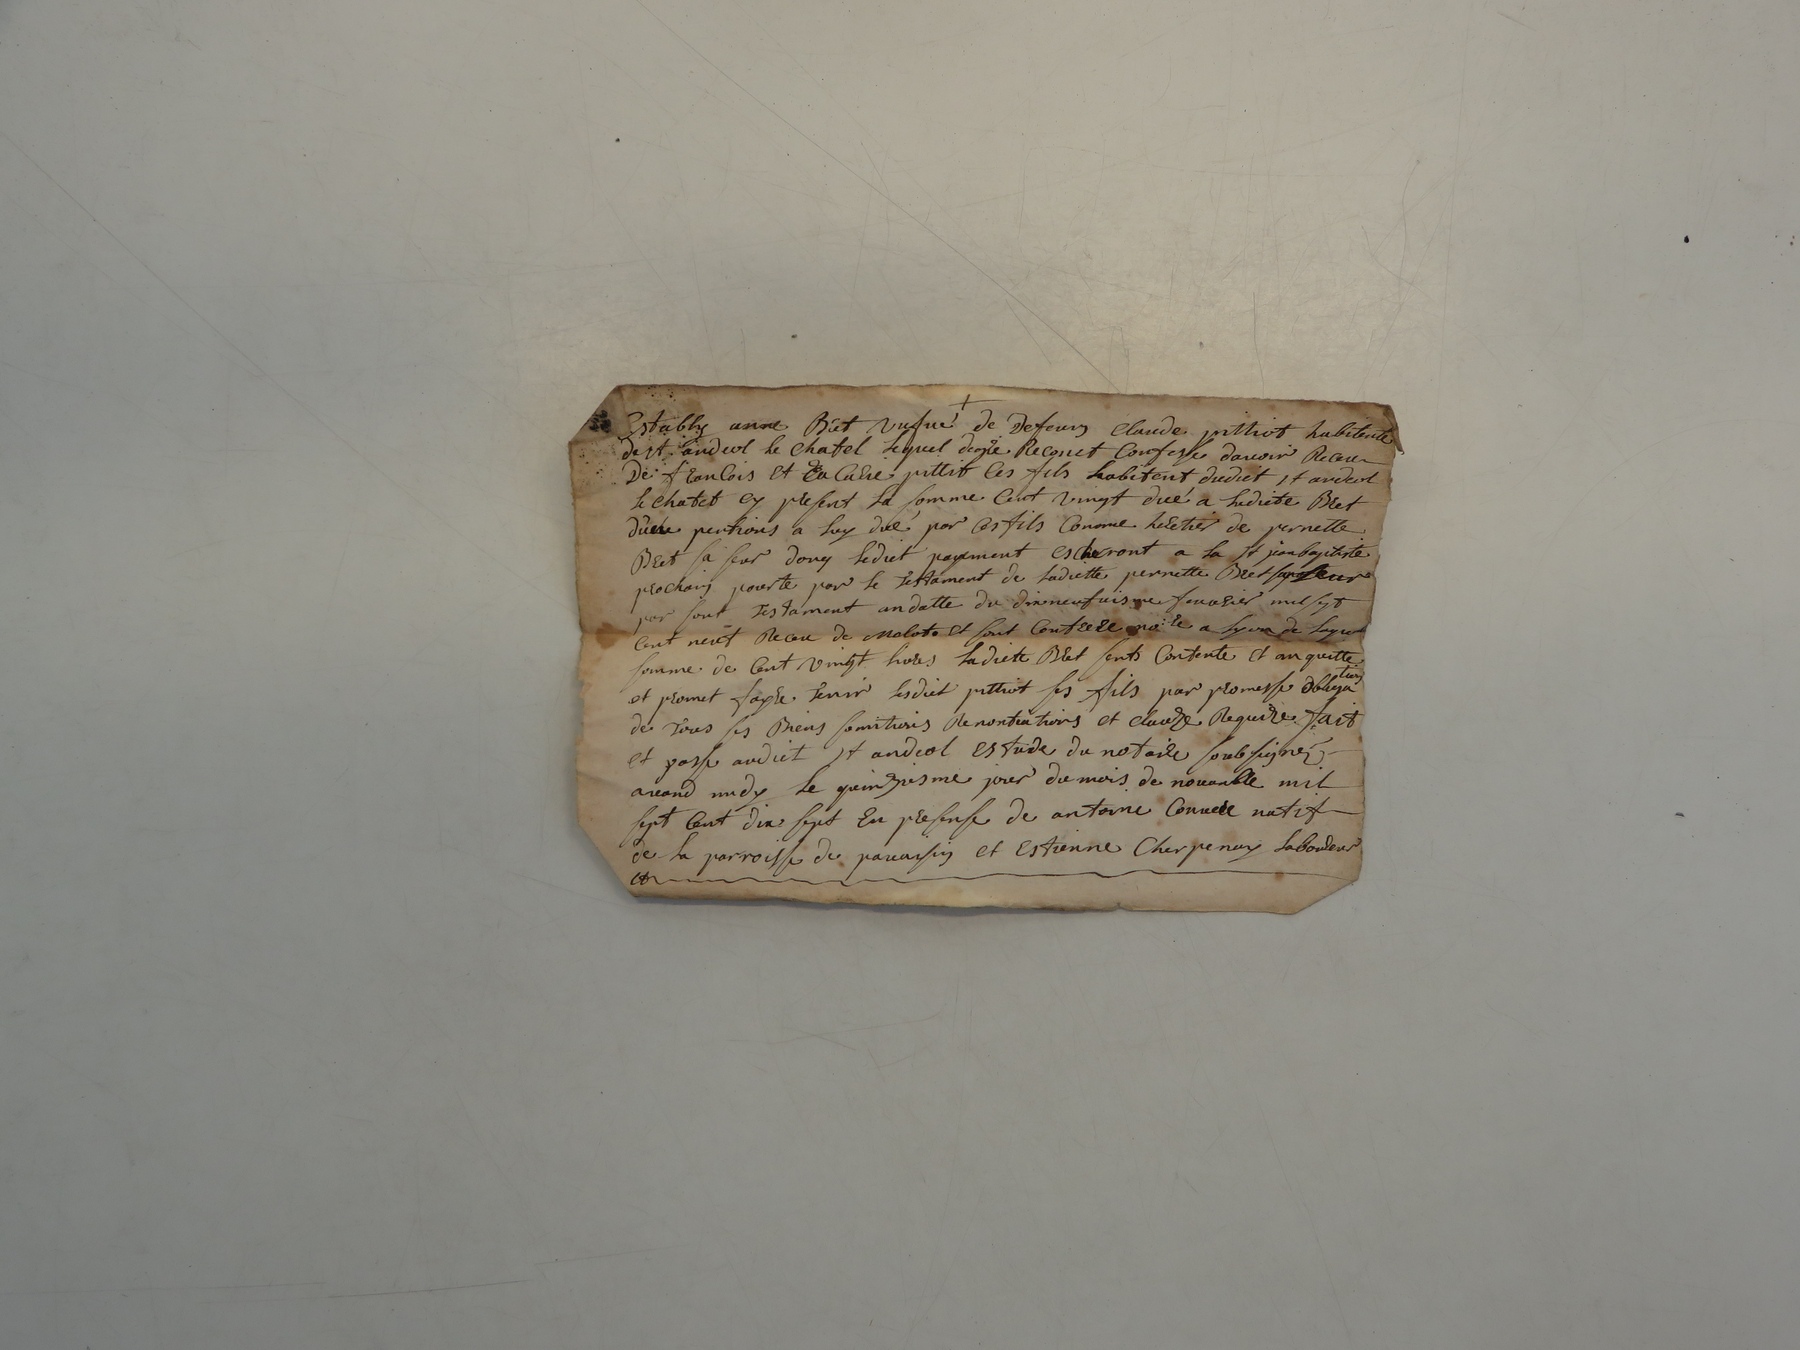 +
Establÿ anne Bret vefue de Defeun claude pittiot habitente
de st andeol le chatel lequel degre Recognet Confesse dauoir Receu
De francois et pittiot Ces fils habitent dudict st andeol
le chatel cy present la somme Cent vingt due a ladicte Bret
pentions a luy due par Ces fils Comme heretier de pernette
Bret sa seur donq ledict payement escheront a la st jean baptiste
prochain pourte par le testament de ladictte pernette Bret seur
par sont testament andatte du dixneufuisme feurier mil sept
Cent neuf Receu de et sont Contrere nore a lyon de laquelle
somme de Cent vingt liures ladicte Bret sents Contente et an quitte
et promet fayre tenir lesdict pittiot ses fils par promesse obligations
de tous ses Biens somitions Renontiations et clauze Requize fait
et passe audict st andeol estude du notaire soubsigne
auand midy le quinzisme jour du mois de nouamble mil
sept Cent dix sept En presense de antoine Couuer natif
de la parroisse de pauaisin et estienne Cherpenay laboureur